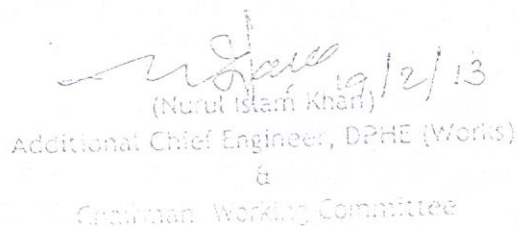 19/2/13
(Nurul Islam Khan)
Additional Chief Engineer, DPHE (Works)
&
Chairman Working Committee